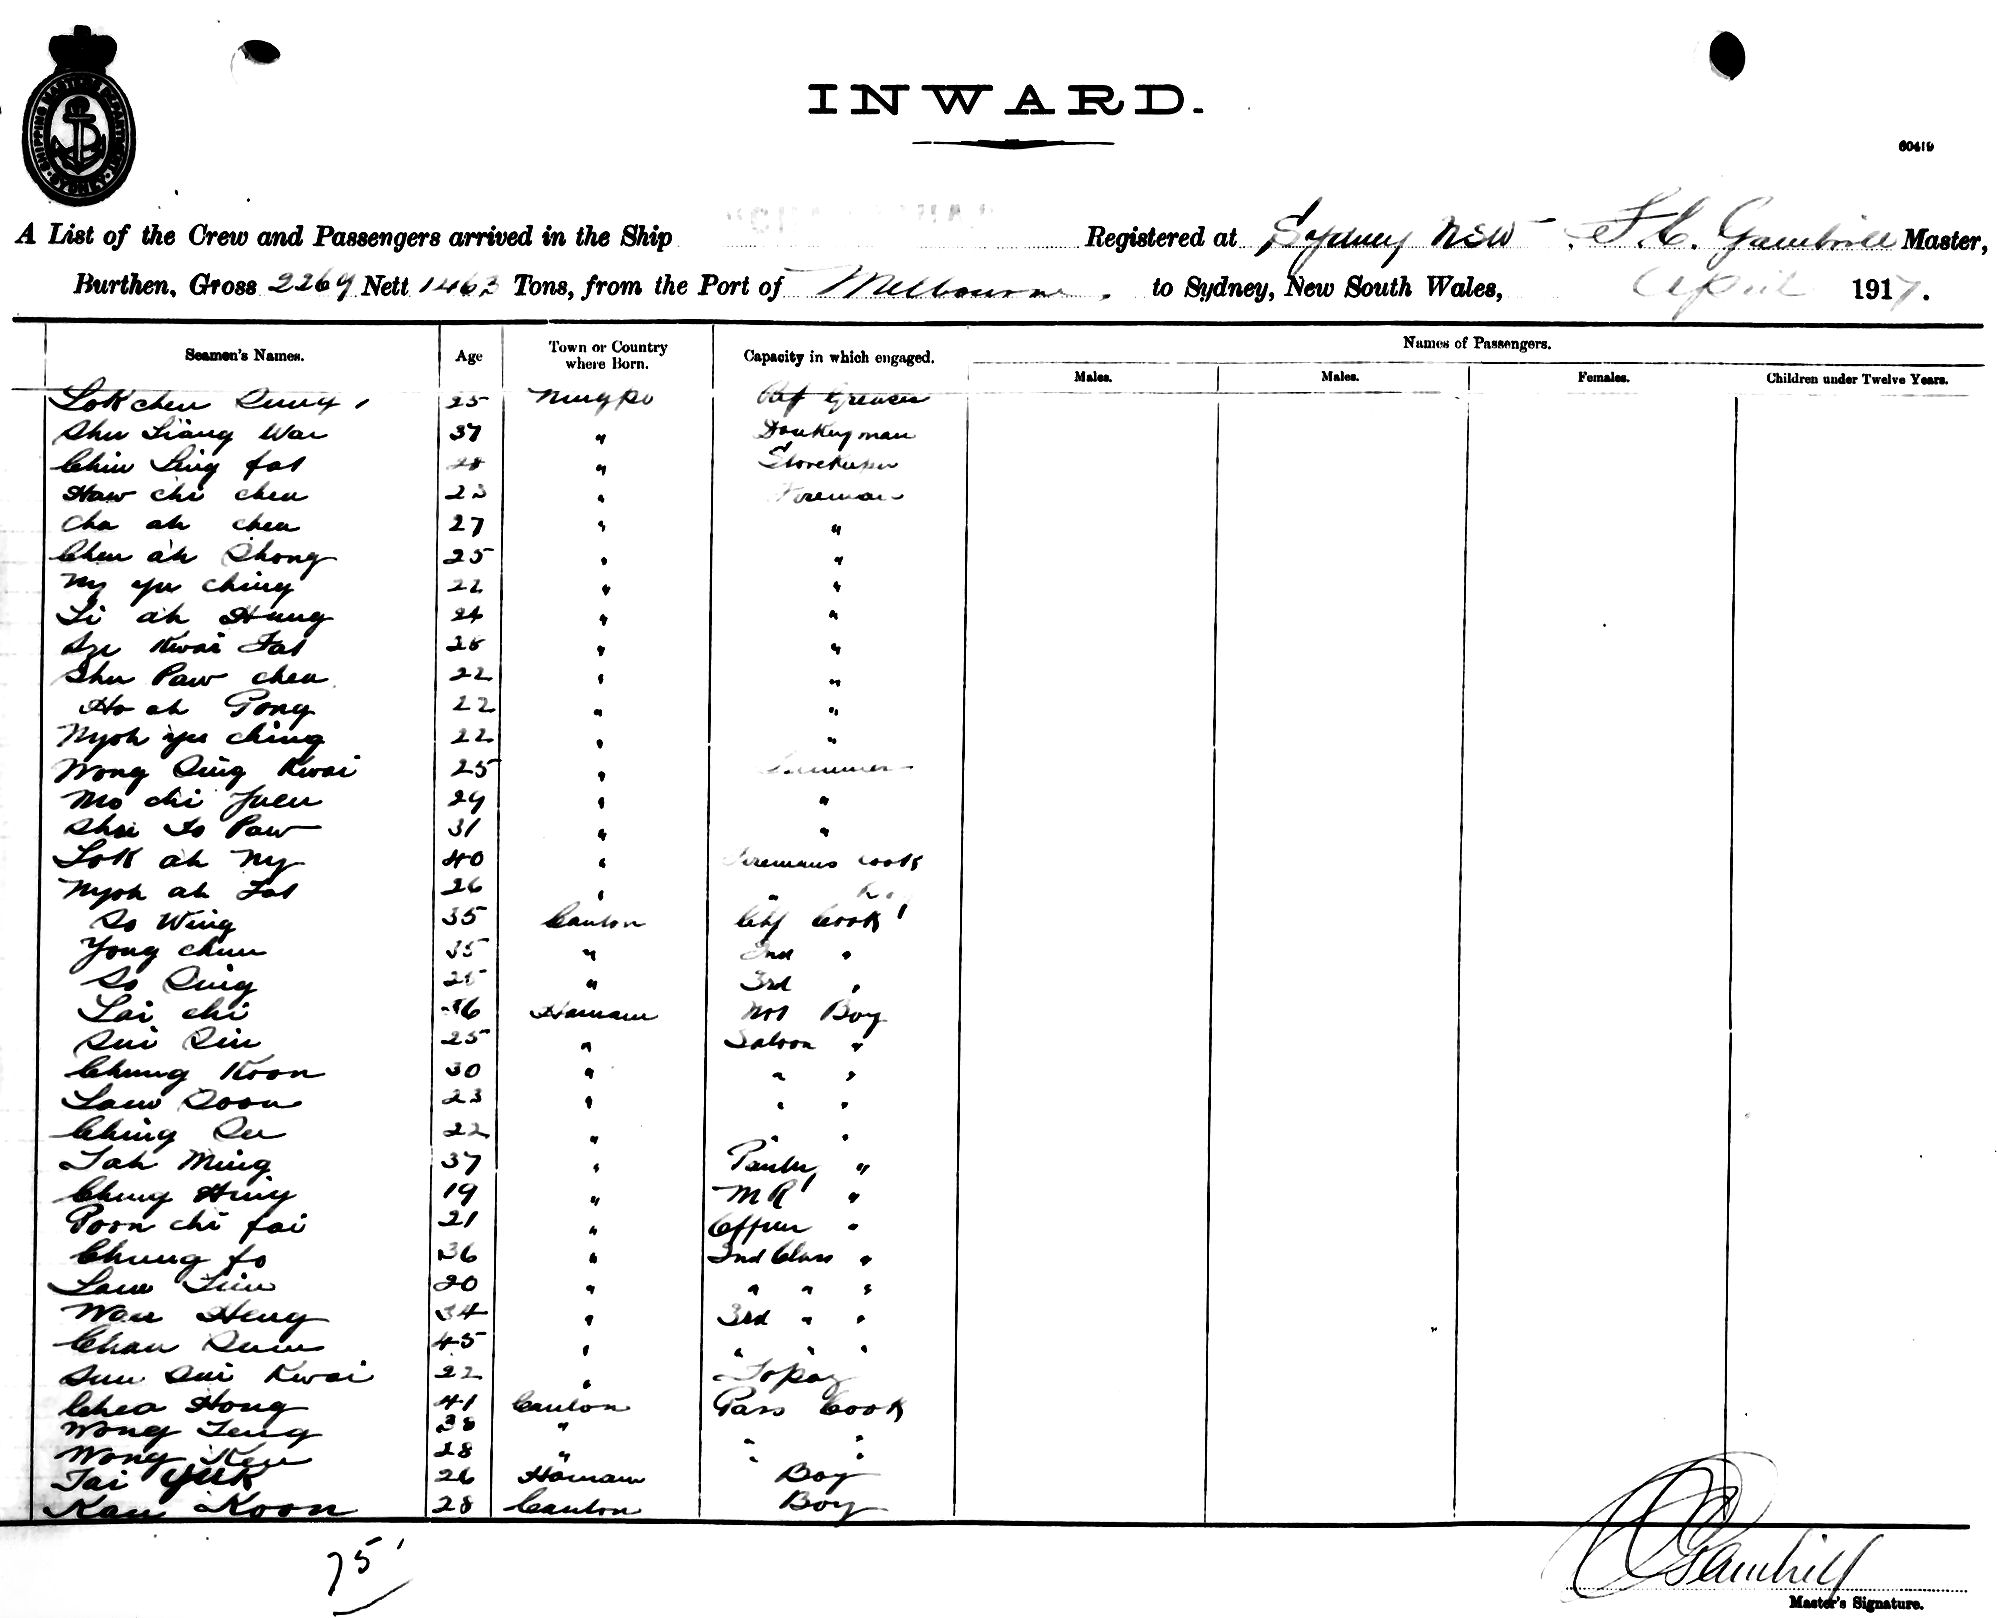 SHIPPING MASTERS DEPARTMENT SYDNEY
INWARD.
60419
A List of the Crew and Passengers arrived in the Ship Registered at Sydney NSW F. C. Gambrill Master,
Burthen, Gross 2269 Nett 1463 Tons, from the Port of Melbourne. to Sydney, New South Wales, April 1917.
Seamen's Names. Age Town or Country where Born. Capacity in which engaged. Names of Passengers.
Males. Males. Females. Children under Twelve Years.
Lok chen 25 Ningpo Ref Greaser
Shu Liang Wai 37 " Donkeyman
Chin Ling fat 28 " Storekeeper
Haw chi chen 23 " Fireman
Cha ah chen 27 " "
Chen ah Shong 25 " "
Ny yu ching 22 " "
Li ah Hung 24 " "
Sze Kwai Fat 28 " "
Shu Paw chen 22 " "
Ho ah Pong 22 " "
Nyoh yu ching 22 " "
Wong Sing Kwai 25 " Trimmer
Mo chi Juen 29 " "
Shu To Paw 31 " "
Lok ah Ny 40 " Firemans Cook
Nyoh ah Fat 26 " "
So Wing 35 Canton Chf Cook
Yong chun 35 " 2nd "
So Sing 25 " 3rd "
Lai chi 36 Hainam No1 Boy
Sui Sin 25 " Saloon "
Chung Koon 30 " " "
Lam Soon 23 " " "
Ching Su 22 " " "
Tah Ming 37 " Pantry "
Chung Hing 19 " M R "
Poon chi fai 21 " Offrs "
Chung fo 36 " 2nd Class "
Lam Tim 20 " " " "
Wan Heng 34 " 3rd " "
Chan Sum 45 " " " "
Sun Sui Kwai 22 " Topaz
Chea Hong 41 Canton Pass Cook
Wong Teng 38 " " "
Wong Ken 28 " " "
Tai YUK 26 Hainam Boy
Kan Koon 28 Canton Boy
75
F C Gambrill
Master's Signature.